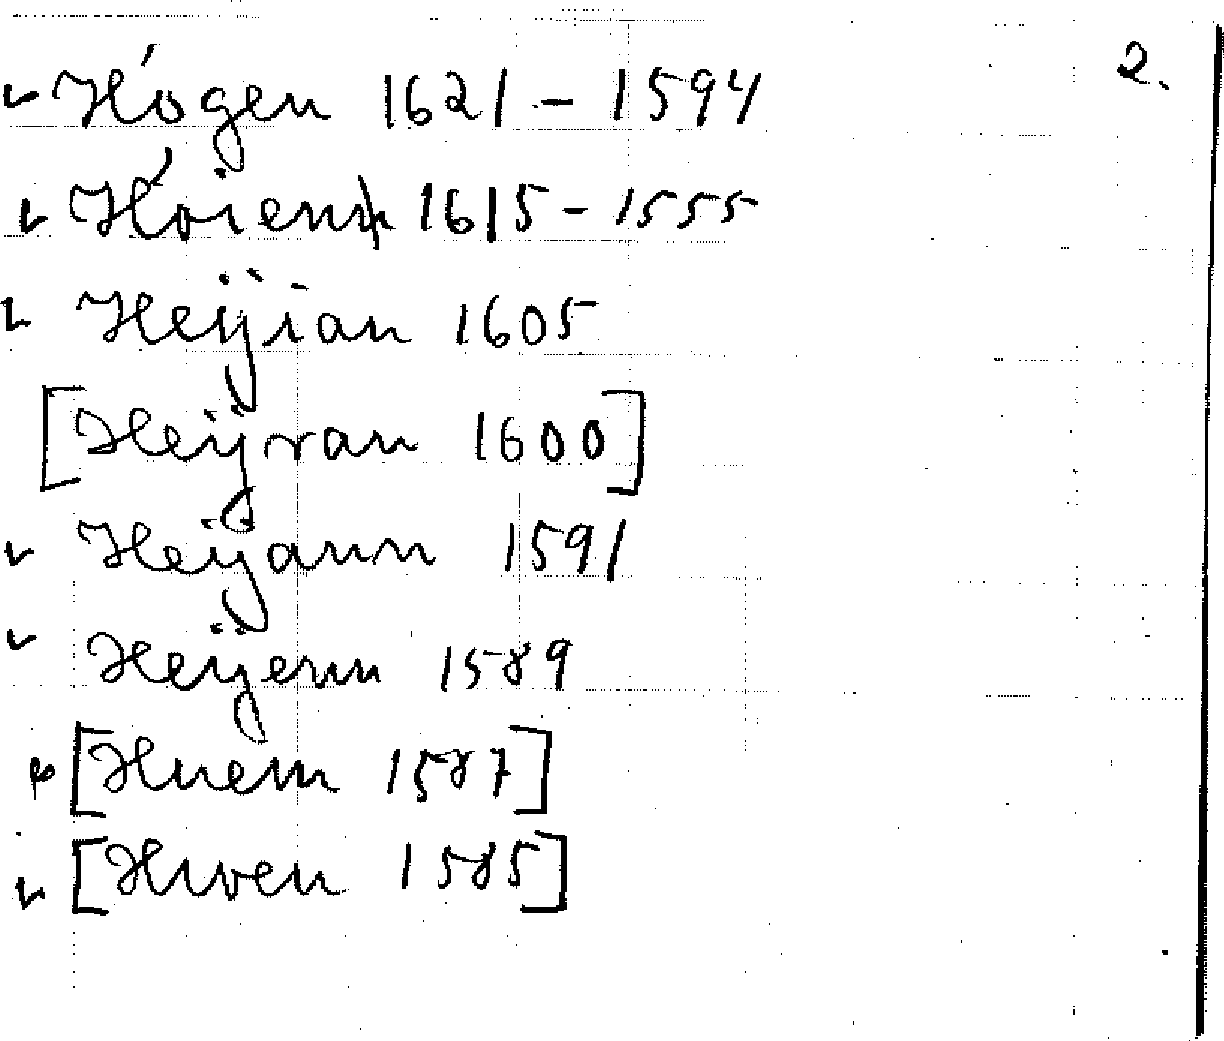 2.
✓ Hógen 1621 – 1594
✓ Hóienn 1615 – 1555
✓ Heÿian 1605
[Heÿran 1600]
✓ Heÿann 1591
✓ Heÿenn 1589
[Huenn 1587]
✓ [Huven 1585]